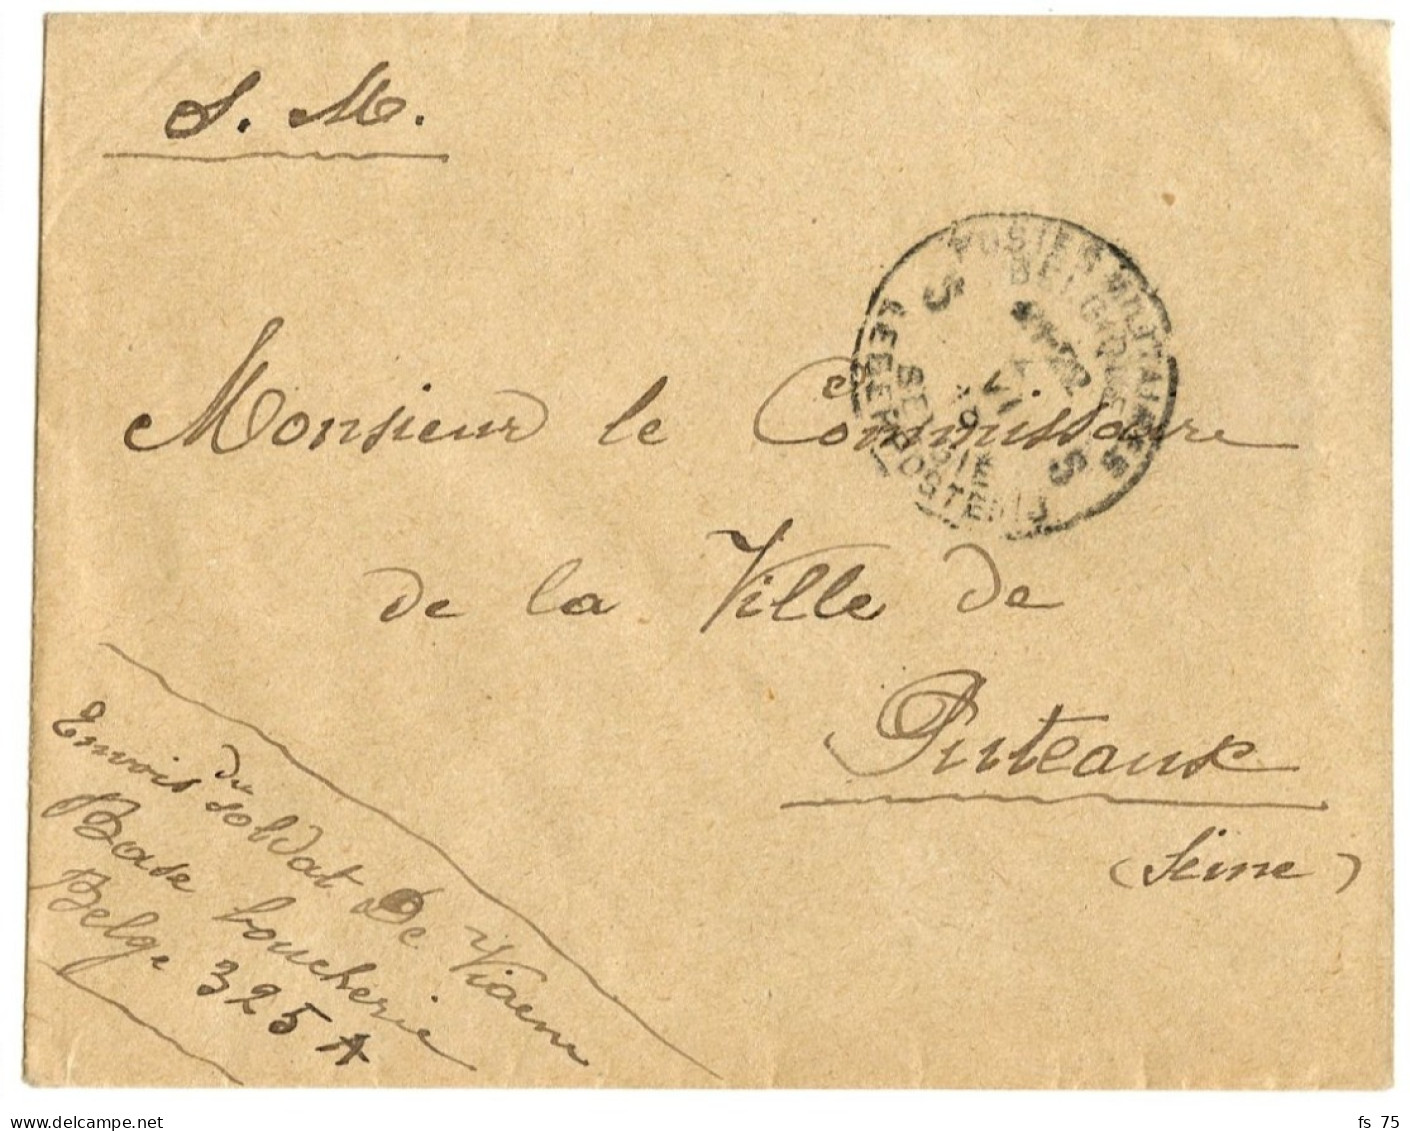 S. M.
POSTES MILITAIRES
BELGIQUE
S S
VI
BELGIË
LEGERPOSTERIJ
Monsieur le Commissaire
de la Ville de
Puteaux
(Seine)
Envois du soldat De Viaene
Base boucherie
Belge 325 A
delcampe.net
fs_75